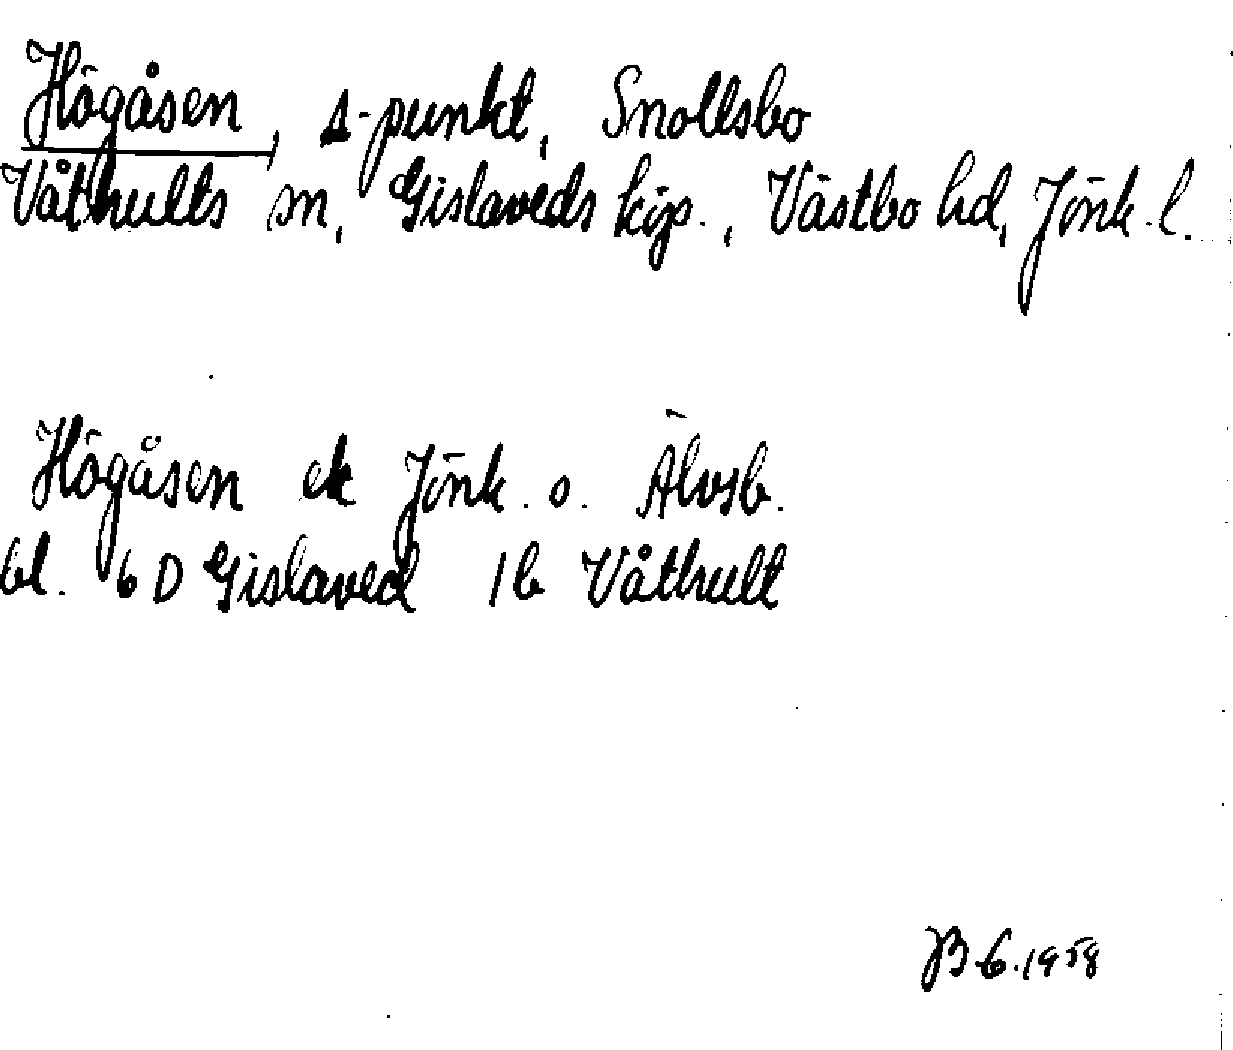 Högåsen, Δ-punkt, Snollsbo
Våthults sn, Gislaveds köp., Västbo hd, Jönk. l.
Högåsen ek Jönk. o. Älvsb.
bl. 6 D Gislaved 1b Våthult
JB 6.1958